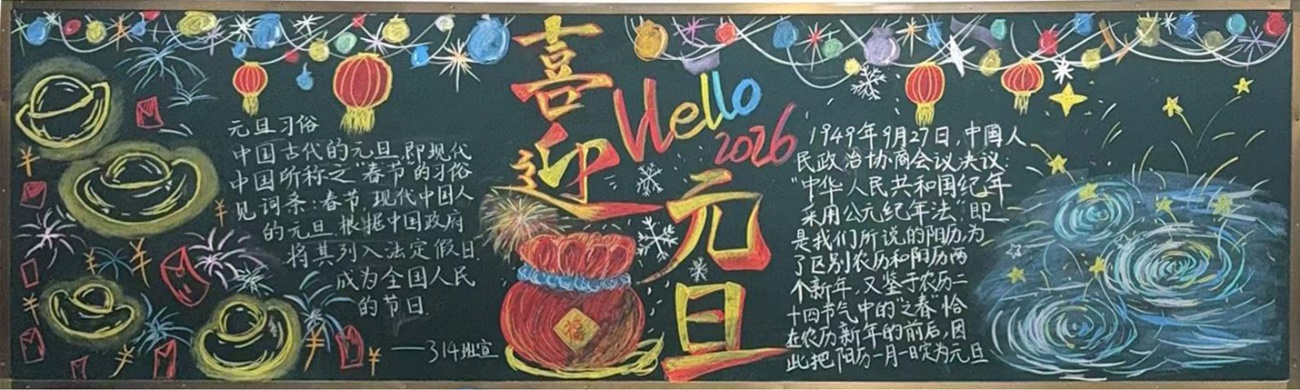 元旦习俗
中国古代的元旦,即现代
中国所称之“春节”的习俗
见词条:春节,现代中国人
的元旦,根据中国政府
将其列入法定假日.
成为全国人民
的节日.
——314班宣
喜迎
Hello
2026
元旦
福
1949年9月27日,中国人
民政治协商会议决议:
“中华人民共和国纪年
采用公元纪年法”即
是我们所说的阳历,为
了区别农历和阳历两
个新年,又鉴于农历二
十四节气中的“立春”恰
在农历新年的前后,因
此把阳历一月一日定为元旦
¥
¥
¥
¥
¥
¥
¥